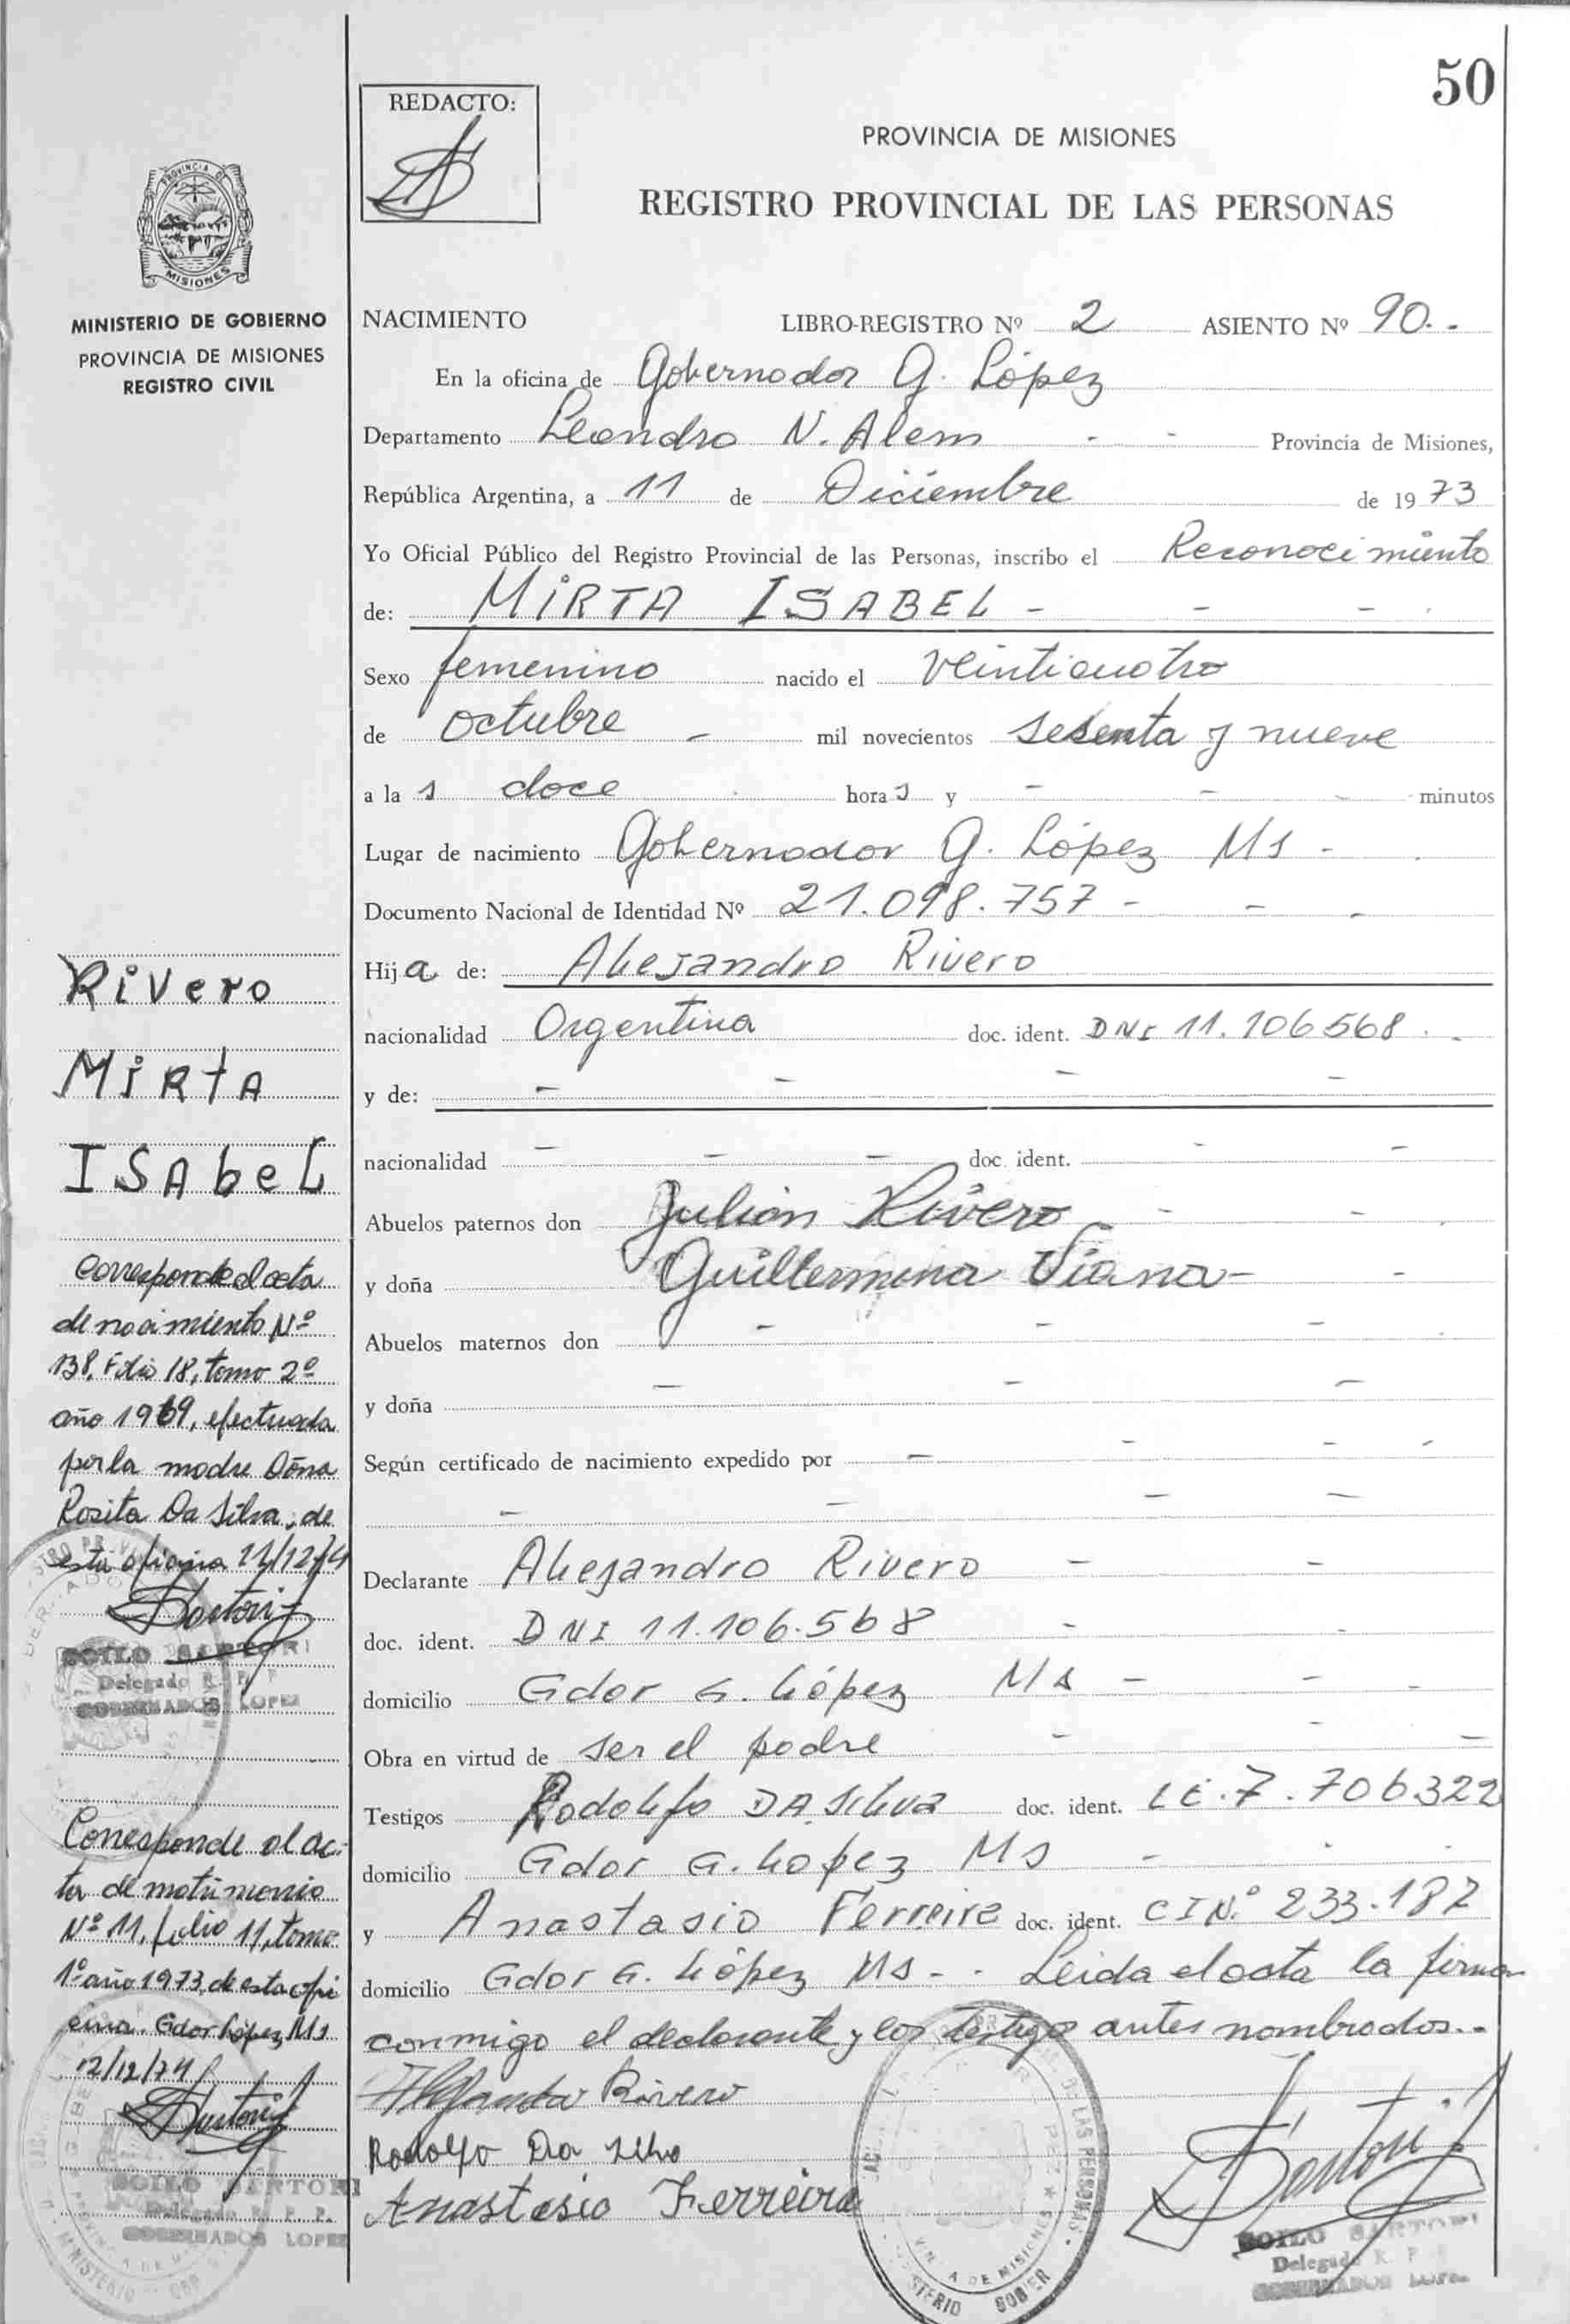 50
REDACTO:
PROVINCIA DE MISIONES
REGISTRO PROVINCIAL DE LAS PERSONAS
MISIONES
MINISTERIO DE GOBIERNO
PROVINCIA DE MISIONES
REGISTRO CIVIL
NACIMIENTO LIBRO-REGISTRO Nº 2 ASIENTO Nº 90.-
En la oficina de Gobernador G. López
Departamento Leandro N. Alem - - Provincia de Misiones,
República Argentina, a 11 de Diciembre de 1973
Yo Oficial Público del Registro Provincial de las Personas, inscribo el Reconocimiento
de: MIRTA ISABEL - - -
Sexo femenino nacido el veinticuatro
de octubre - mil novecientos sesenta y nueve
a la s doce horas y - - - minutos
Lugar de nacimiento Gobernador G. López Ms -
Documento Nacional de Identidad Nº 21.098.757 - - -
Hija de: Alejandro Rivero
nacionalidad Argentina doc. ident. DNI 11.106568.
y de: - - - -
nacionalidad - - - doc. ident. - -
Abuelos paternos don Julian Rivero - -
y doña Guillermina Viana - -
Abuelos maternos don - - -
y doña - - -
Según certificado de nacimiento expedido por - - - -
- - - -
Declarante Alejandro Rivero - -
doc. ident. DNI 11.106.568 - -
domicilio Gdor G. López Ms - - -
Obra en virtud de ser el padre - - -
Testigos Rodolfo DA Silva doc. ident. LE.7.706322
domicilio Gdor G. Lopez Ms -
y Anastasio Ferreira doc. ident. CI Nº 233.187
domicilio Gdor G. López Ms - - Leida el acta la firma
conmigo el declarante y los testigo antes nombrados.-
Alejandro Rivero
Rodolfo Da Silva
Anastasio Ferreira
Sartori
SOILO SARTORI
Delegado R. P.
GOBERNADOR LOPEZ
Rivero
MirtA
ISAbeL
Corresponde al acta
de nacimiento Nº
138, Folio 18, tomo 2º
año 1969, efectuada
por la madre Doña
Rosita Da Silva, de
esta oficina 11/12/74
Sartori
SOILO SARTORI
Delegado R. P. P.
GOBERNADOR LOPEZ
Corresponde al ac-
ta de matrimonio
Nº 11, folio 11, tomo
1º año 1973, de esta ofi
cina. Gdor López, Ms
12/12/74
Sartori
SOILO SARTORI
Delegado R. P. P.
GOBERNADOR LOPEZ